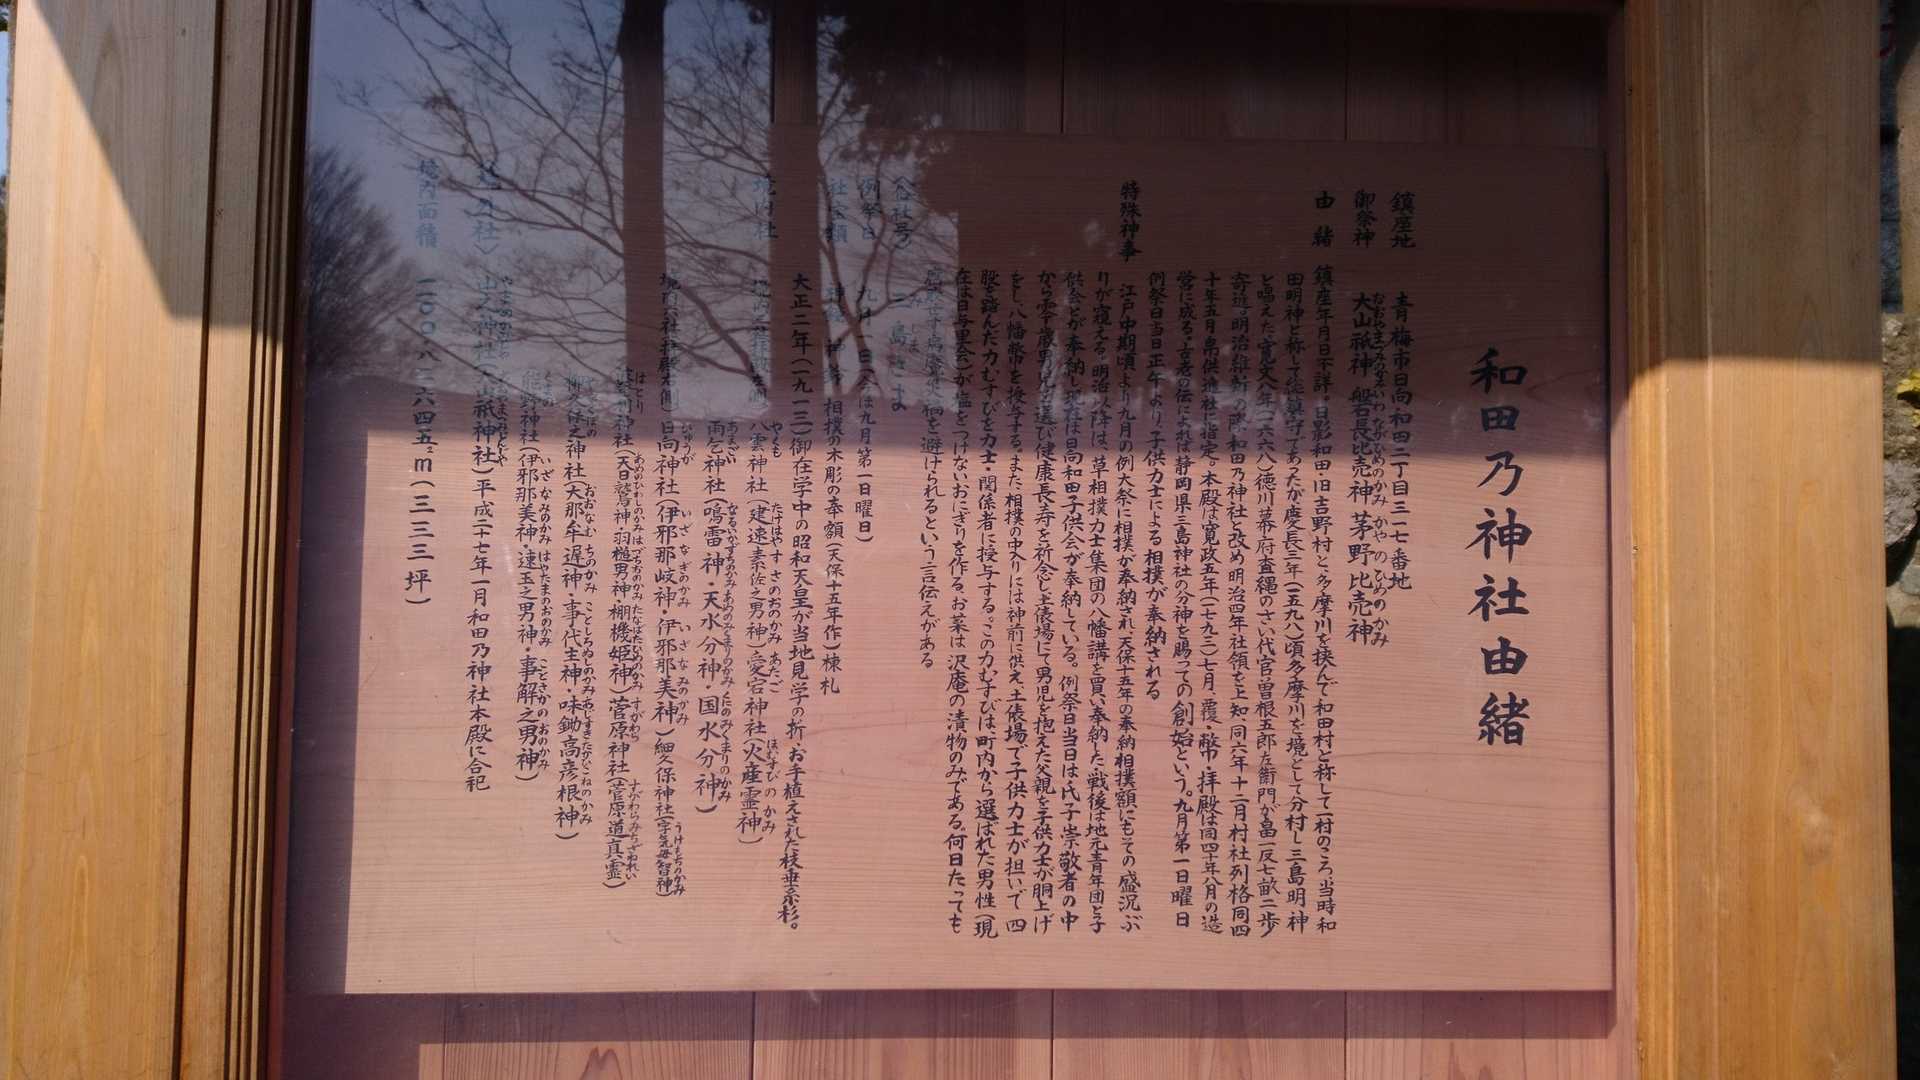 和田乃神社由緒
鎮座地 青梅市日向和田二丁目三一七番地
御祭神 大山祇神 磐長比売神 茅野比売神
由緒 鎮座年月日不詳。日影和田・旧吉野村と、多摩川を挟んで和田村と称して一村のころ、当時和
田明神と称して総鎮守であったが慶長三年(一五九八)頃多摩川を境として分村し三島明神
と唱えた。寛文八年(一六六八)徳川幕府査縄のさい代官曽根五郎左衛門が畠一反七畝二歩
寄進。明治維新の際、和田乃神社と改め明治四年社領を上知、同六年十二月村社列格同四
十年五月帛供進社に指定。本殿は寛政五年(一七九三)七月、覆・幣・拝殿は同四十年八月の造
営に成る。古老の伝によれば静岡県三島神社の分神を賜っての創始という。九月第一日曜日
例祭日当日正午より、子供力士による相撲が奉納される
特殊神事 江戸中期頃より九月の例大祭に相撲が奉納され、天保十五年の奉納相撲額にもその盛況ぶ
りが窺える。明治以降は、草相撲力士集団の八幡講を買い奉納した・戦後は地元青年団と子
供会とが奉納し現在は日向和田子供会が奉納している。例祭日当日は氏子崇敬者の中
から零才歳男児を選び健康長寿を祈念し土俵場にて男児を抱えた父親を子供力士が胴上げ
をし、八幡幣を授与する。また、相撲の中入りには神前に供え土俵場で子供力士が担いで四
股を踏んだ力むすびを力士・関係者に授与する。この力むすびは、町内から選ばれた男性(現
在は日与里会)が塩をつけないおにぎりを作る。お菜は沢庵の漬物のみである。何日たっても
腐敗せず病魔災禍を避けられるという言伝えがある
(俗社号) 三島さま
例祭日 九月一日(今は九月第一日曜日)
社宝類 神鏡 神號 相撲の木彫の奉額(天保十五年作)棟札
大正二年(一九一三)御在学中の昭和天皇が当地見学の折、お手植えされた枝垂糸杉。
境内社 境内社拝殿左側 八雲神社(建速素佐之男神)愛宕神社(火産霊神)
雨乞神社(鳴雷神・天水分神・国水分神)
境内六社拝殿右側) 日向神社(伊邪那岐神・伊邪那美神)細久保神社(宇気母智神)
服織神社(天日鷲神・羽槌男神・棚機姫神)菅原神社(菅原道真霊)
柳久保之神社(大那牟遅神・事代主神・味鋤高彦根神)
熊野神社(伊邪那美神・速玉之男神・事解之男神)
山之神社(大山祇神社)平成二十七年一月和田乃神社本殿に合祀
境内面積 一一〇〇・八二六四五㎡(三三三坪)